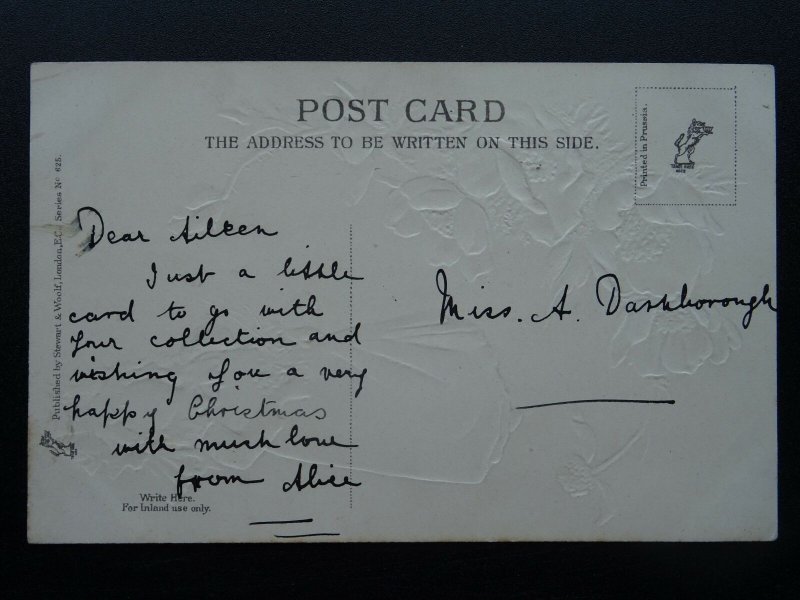 POST CARD
THE ADDRESS TO BE WRITTEN ON THIS SIDE.
Printed in Prussia.
Published by Stewart & Woolf, London, E.C. Series No 625.
Dear Aileen
Just a little
card to go with
your collection and
wishing you a very
happy Christmas
with much love
from Alice
Write Here.
For Inland use only.
Miss. A. Darkborough